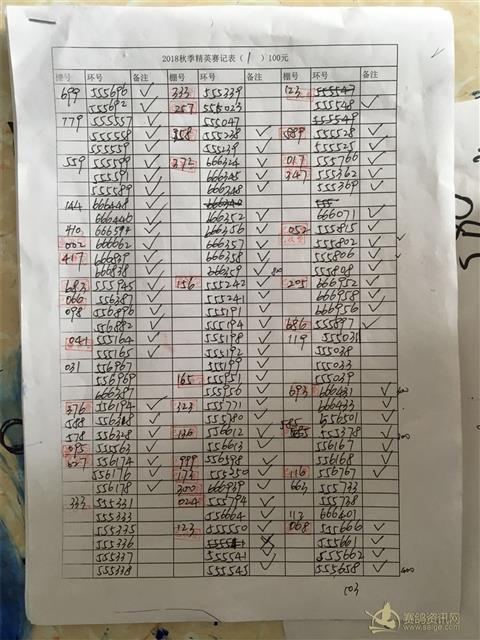 2018秋季精英赛记表（1）100元
棚号 环号 备注 棚号 环号 备注 棚号 环号 备注
699 555696 ✓ 333 555339 123
555692 ✓ 257 555023 555548 ✓
779 555557 ✓ 555047
555558 ✓ 358 555238 ✓ 589 555528 ✓
555559 ✓ 555239 ✓ 555525 ✓
559 ✓ 372 666324 ✓ 017 555766 ✓
555591 ✓ 666345 ✓ 347 555362 ✓
555589 ✓ 666348 ✓ 555369 ✓
144 666448 ✓ 555
666446 ✓ 666352 ✓ 666071 ✓
410 666594 ✓ 666356 ✓ 052 555815 ✓
002 666662 ✓ 666357 ✓ 555802 ✓
417 666839 ✓ 666358 ✓ 555806 ✓
666838 ✓ 666359 ✓ 555808 ✓
683 555945 ✓ 156 555242 ✓ 205 666952 ✓
066 556387 ✓ 555241 ✓ 666958 ✓
098 556896 ✓ 555191 ✓ 666956 ✓
556882 ✓ 555194 ✓ 686 555897 ✓
041 555164 ✓ 555198 ✓ 119
555165 ✓ 555192 ✓ 555038
031 556967 555199 ✓ 555033
556969 165 555951 ✓ 555039
666387 555956 ✓ 693 666431 ✓
376 556194 ✓ 323 555771 ✓ 666433 ✓
588 ✓ 555780 ✓ 585 556501 ✓
578 556328 ✓ 136 556612 ✓ 555378 ✓
095 55563 ✓ 556613 ✓ 556167 ✓
027 556174 ✓ 999 556598 ✓ 556168 ✓
556176 ✓ 173 555350 ✓ 116 556767 ✓
556178 ✓ 300 666939 ✓ 663 555733
333 555331 024 555794 ✓ 555738
555333 556664 ✓ 113 666401
555335 123 555550 ✓ 068 555666 ✓
555336 555661 ✓
555337 555541 ✓ 555662 ✓
555338 555545 ✓ 555658 ✓
103
赛鸽资讯网
www.saige.com